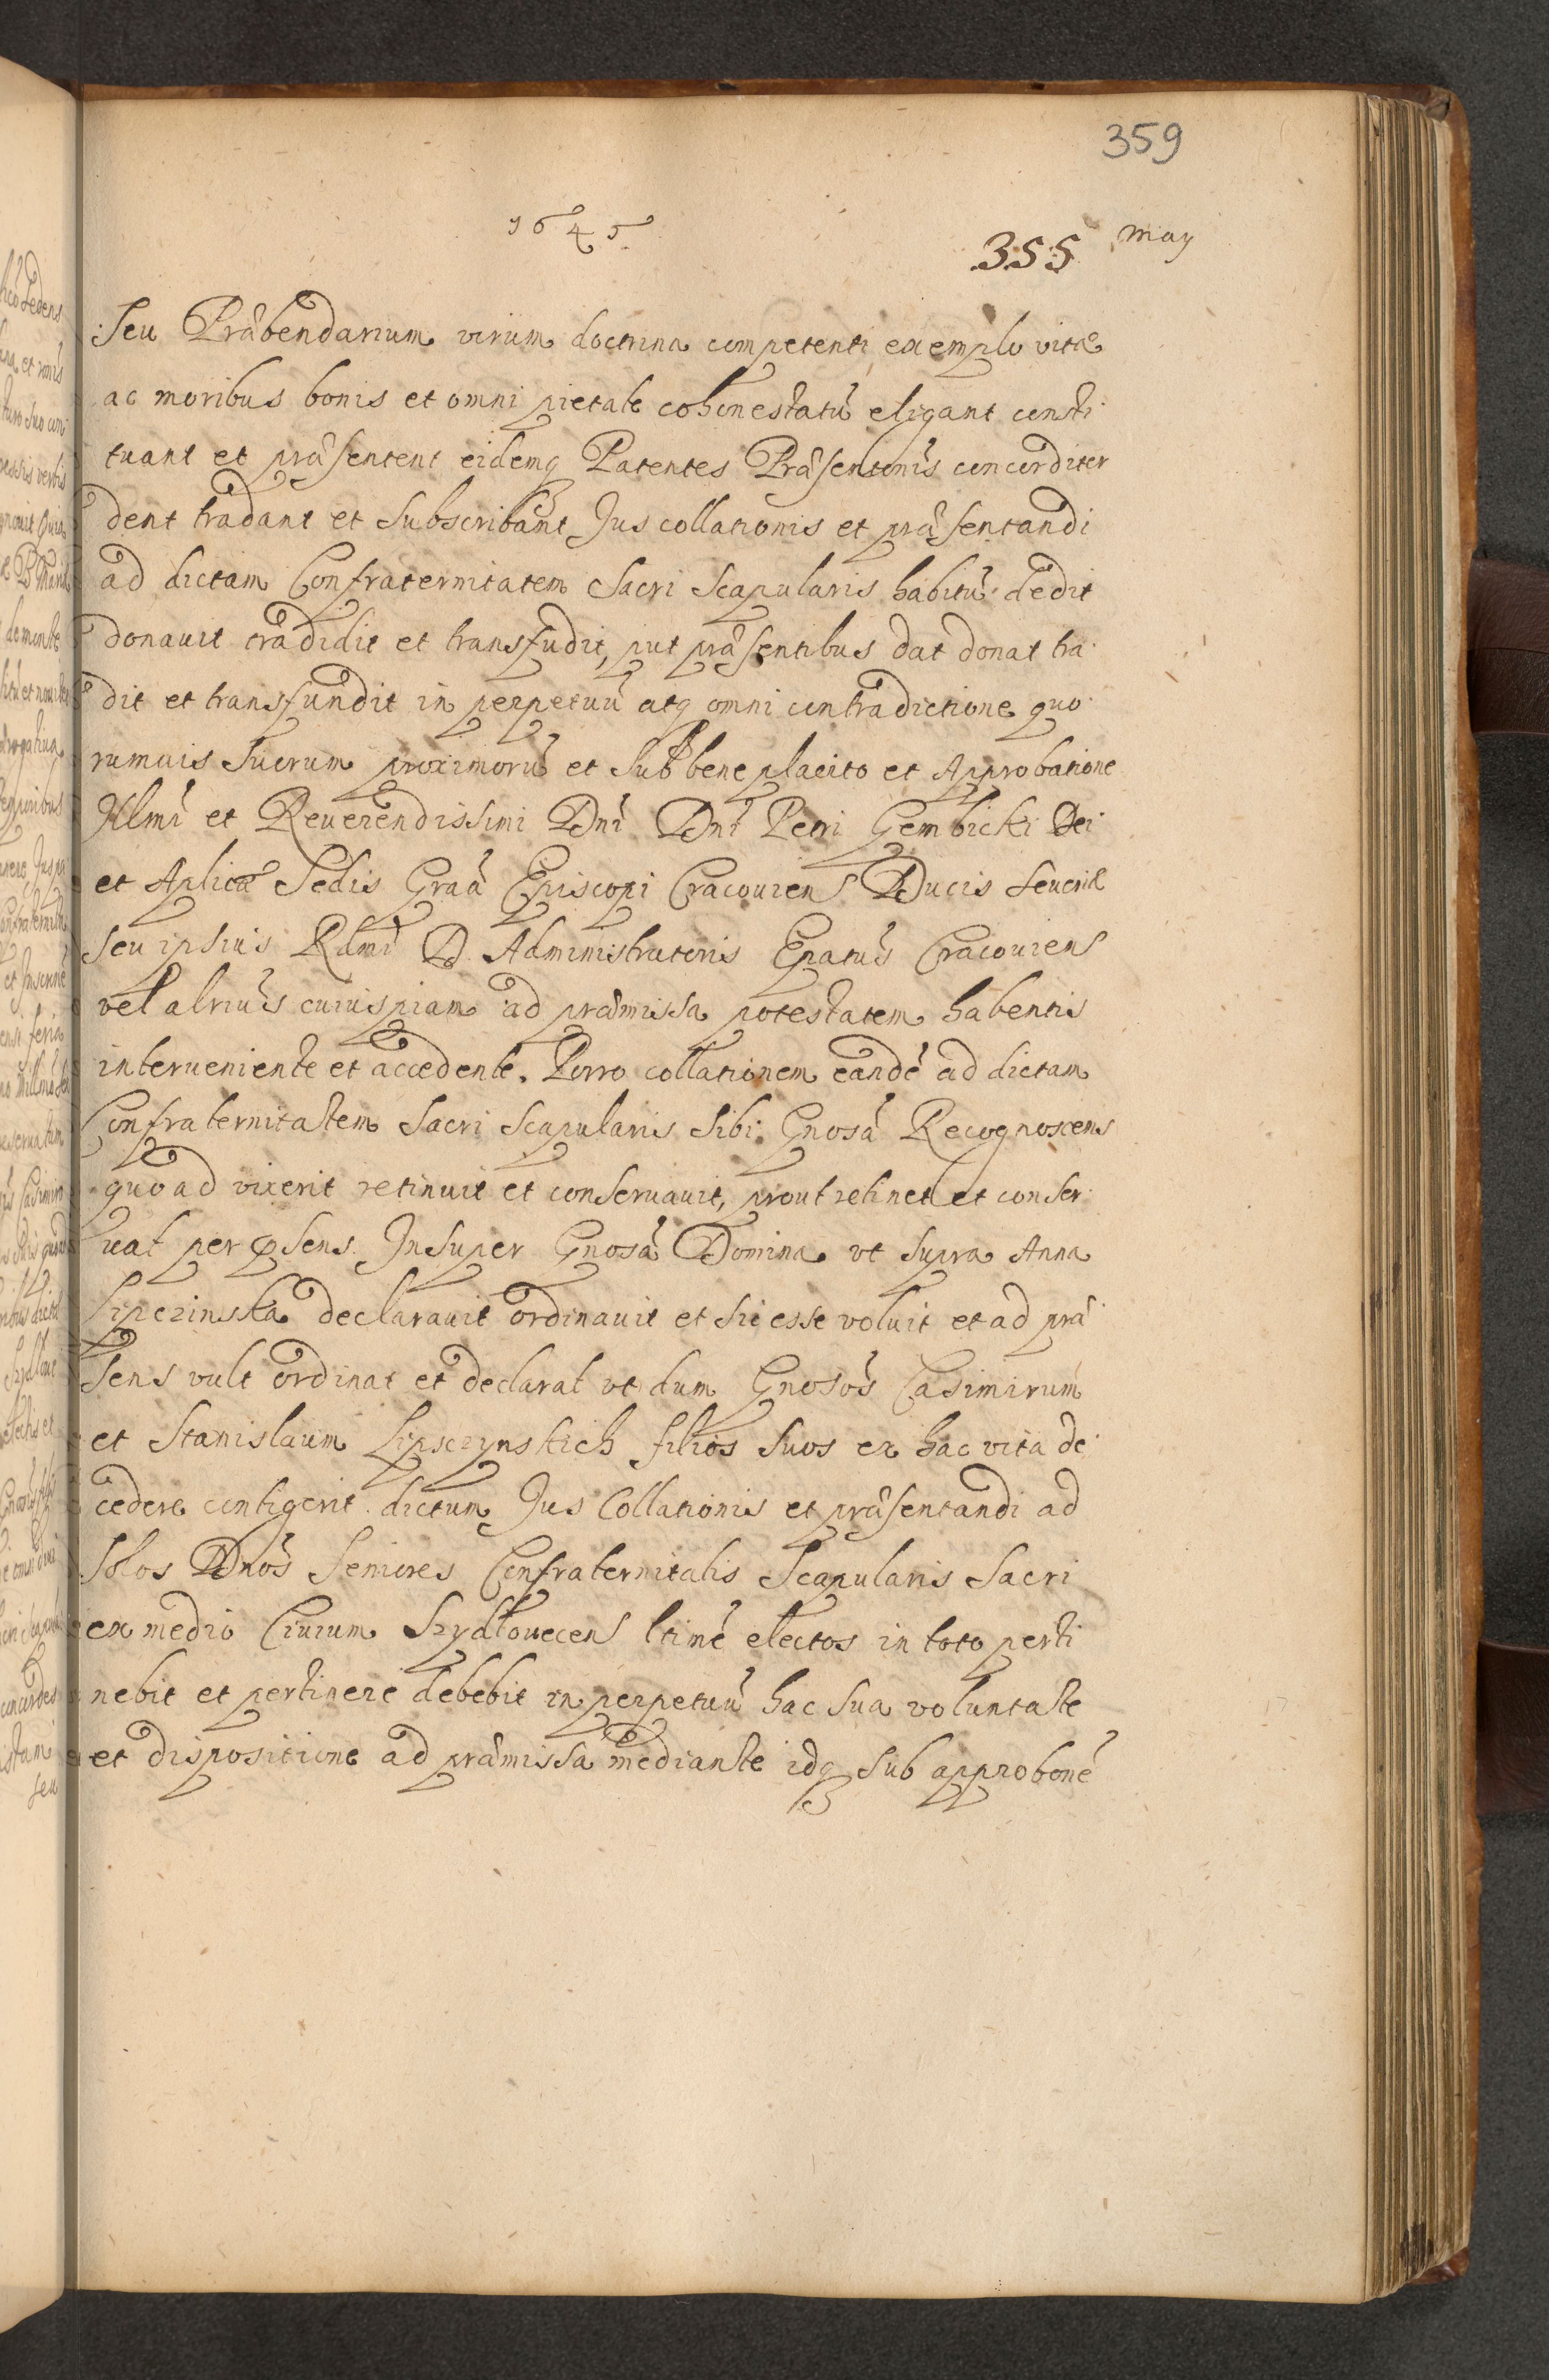 359
1645
355 May
seu Præbendarium virum doctrina competenti exemplo vitæ
ac moribus bonis et omni pietate cohonestatũ eligant consti
tuant et præsentent eidemq Patentes Præsentonis concorditer
dent tradant et subscribant Jus collationis et præsentandi
ad dictam Confraternitatem Sacri Scapularis habitũ dedit
donauit tradidit et transfudit, put præsentibus dat donat tra
dit et transfundit in perpetuũ atq omni contradictione quo
rumuis suorum proximorũ et sub beneplacito et Approbatione
Illmi et Reuerendissimi Dni Dni Petri Gembicki Dei
et Aplicæ Sedis Graa Episcopi Cracouiens Ducis Seueriæ
seu ipsius Rdmi D. Administratoris Epatus Cracouiens
vel alrius cuiuspiam ad præmissa potestatem habentis
interueniente et accedente. Porro collationem eandẽ ad dictam
Confraternitatem Sacri Scapularis sibi Gnosa Recognoscens
quoad vixerit retinuit et conseruauit, prout retinet et conser
uat per psens. Insuper Gnosa Domina vt supra Anna
Lipczinska declarauit ordinauit et sic esse voluit et ad præ
sens vult ordinat et declarat vt dum Gnosos Casimirum
et Stanislaum Lipsczynskich filios suos ex hac vita de
cedere contigerit dictum Jus Collationis et præsentandi ad
solos Dnos Seniores Confraternitatis Scapularis Sacri
ex medio Ciuium Szydłouecens ltime electos in toto perti
nebit et pertinere debebit in perpetuũ hac sua voluntate
et dispositione ad præmissa mediante idq sub approbone